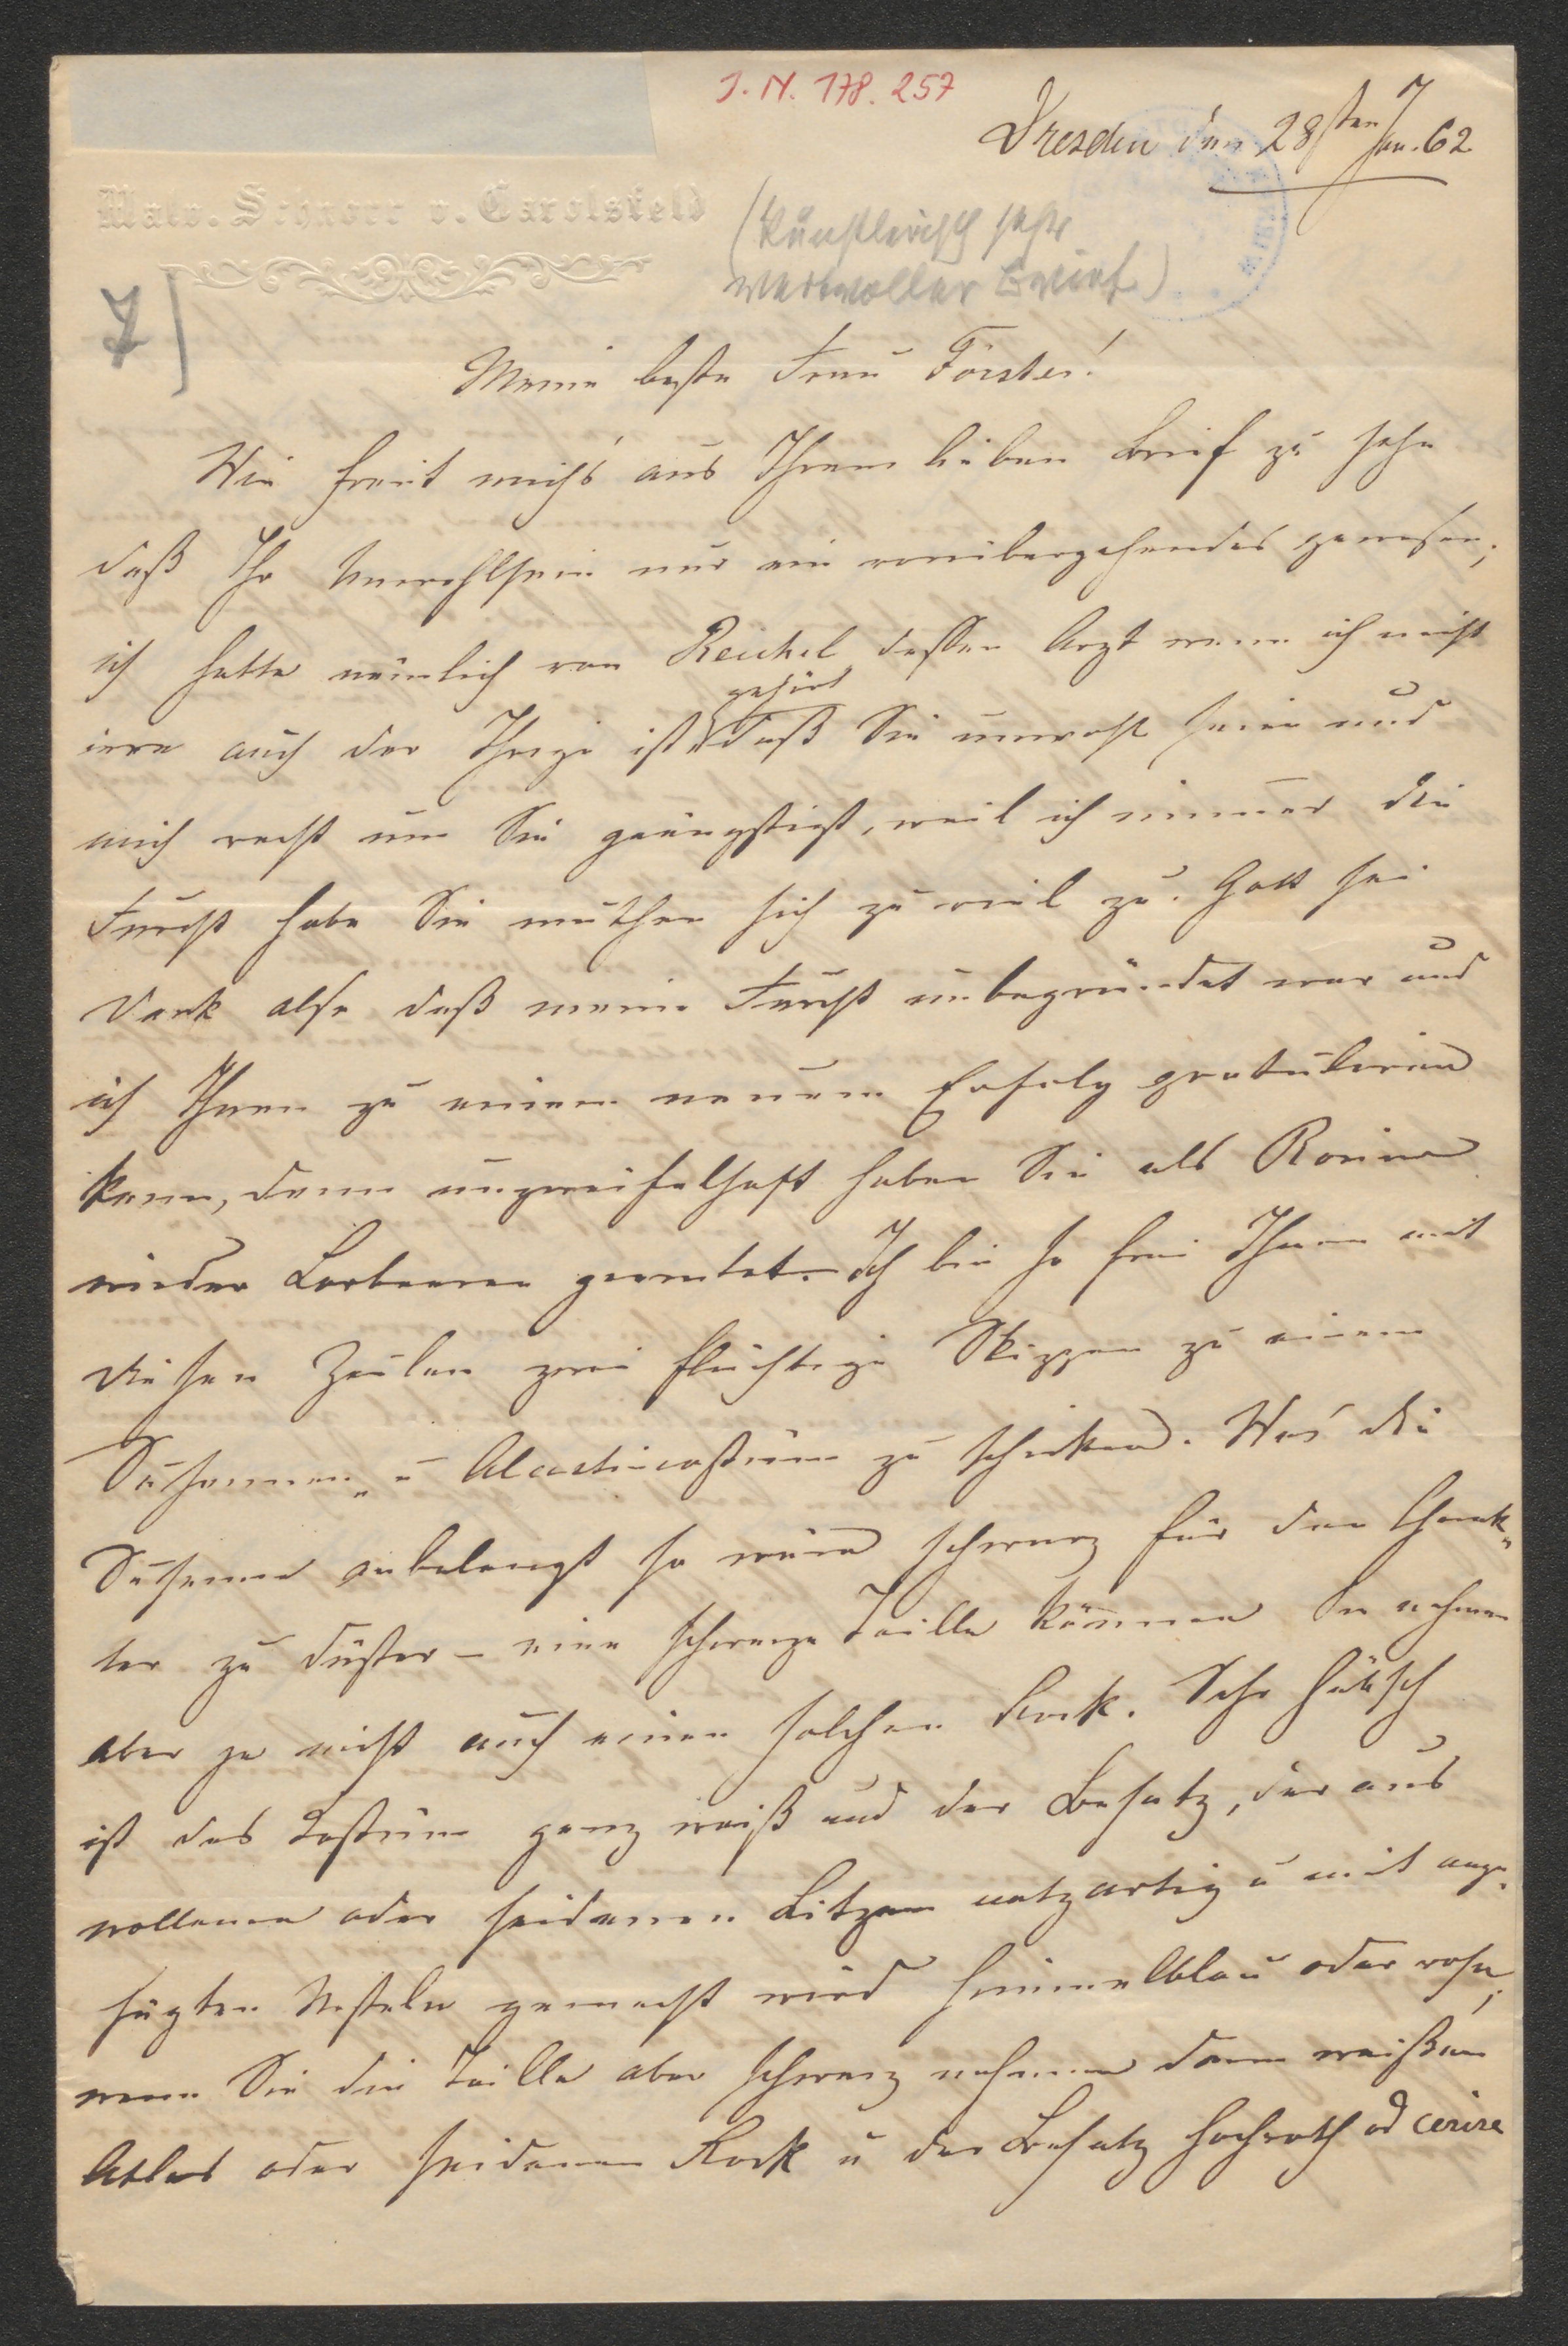 J. N. 178.257
Dresden den 28sten Jan. 62
Malv. Schnorr v. Carolsfeld
(künstlerisch sehr
wertvoller Brief)
7]
Meine beste Frau Förster!
Wie freut mich's aus Ihrem lieben Brief zu sehn
daß Ihr Unwohlsein nur ein vorübergehendes gewesen;
ich hatte nämlich von Reichel dessen Arzt wenn ich nicht
gehört
irre auch der Ihrige ist, daß Sie unwohl seien und
mich recht um Sie geängstigt, weil ich immer die
Furcht habe Sie muthen sich zu viel zu. Gott sei
Dank also daß meine Furcht unbegründet war und
ich Ihnen zu einem neuen Erfolg gratuliren
kann, denn unzweifelhaft haben Sie als Rosine
wieder Lorbeeren geerntet. – Ich bin so frei Ihnen mit
diesen Zeilen zwei flüchtige Skizzen zu einem
Susannen- u Costüm zu schicken. Was die
Susanne anbelangt so wäre schwarz für den Charak-
ter zu düster – eine schwarze Taille können Sie nehmen
aber ja nicht auch einen solchen Rock. Sehr hübsch
ist das Costüm ganz weiß und der Besatz, der aus
wollenen oder seidenen Litzen netzartig u mit ange-
fügten Nesteln gemacht wird himmelblau oder rosa;
wenn Sie die Taille aber schwarz nehmen dann weißen
Atlas oder seidenen Rock u der Besatz hochroth od cerise